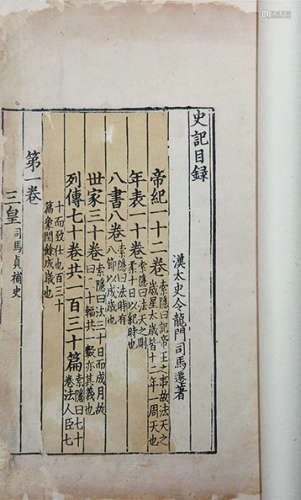 史記目録
漢太史令龍門司馬遷著
帝紀一十二卷 索隱曰記帝王之事故法天之歲星太歲若十二年一周天也
年表一十卷 索隱曰法天之剛柔十日以紀時也
八書八卷 索隱曰法時有八節以成歲也
世家三十卷 索隱曰法三十日而成月故曰三十輻共一轂亦其義也
列傳七十卷共一百三十篇 索隱曰七十卷法人臣七
十而致仕也百三十
篇象閏餘成歲也
第一卷
三皇 司馬貞補史